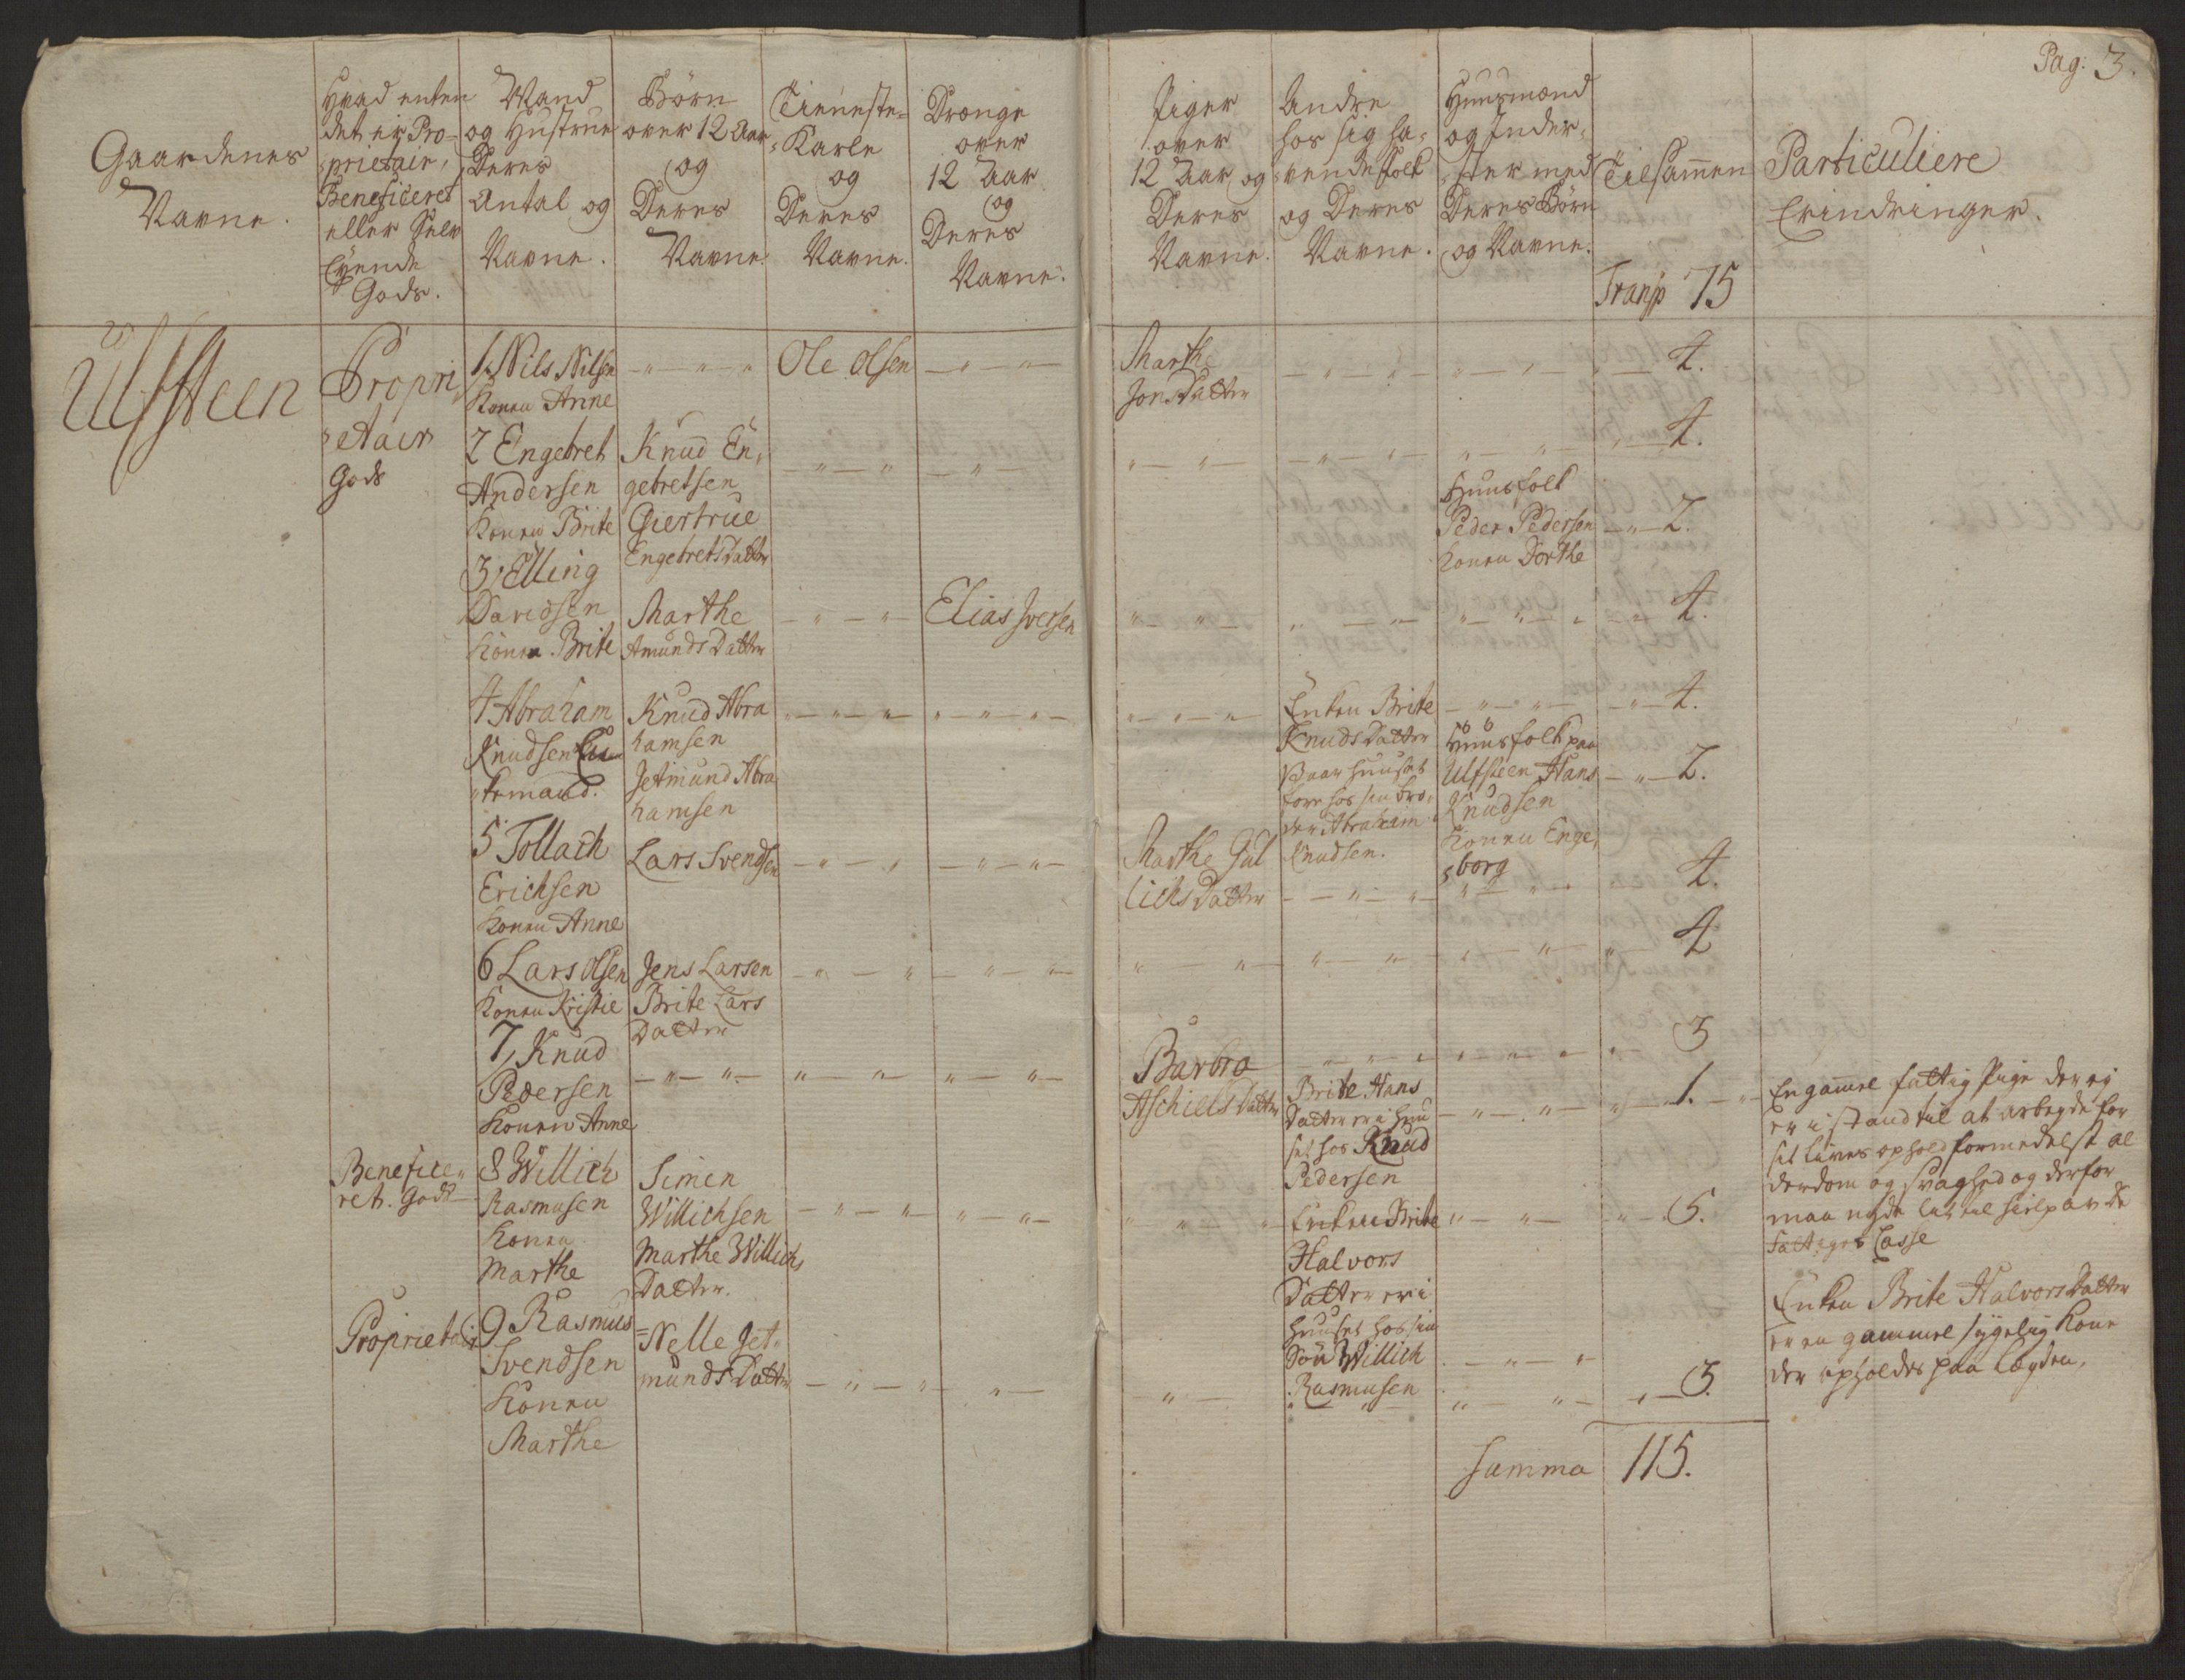 Pag: 3.
Gaardenes
Navne.
Hvad enten
det er Pro-
prietair,
Beneficeret
eller Selv
Eyende
Gods.
Mand
og Hustrue
Deres
Antal og
Navne.
Börn
over 12 Aar
og
Deres
Navne.
Tieneste-
Karle
og
Deres
Navne.
Drænge
over
12 Aar
og
Deres
Navne.
Piger
over
12 Aar og
Deres
Navne.
Andre
hos sig ha-
vende Folk
og Deres
Navne.
Huusmænd
og Inder-
ster med
Deres Börn
og Navne.
Tilsamen
Transp 75
Particuliere
Erindringer.
Ulfsteen
Propri
etair
Gods
1. Nils Nilsen
Konen Anne
Ole Olsen
Marthe
Jons Datter
4.
2 Engebret
Andersen
Konen Brite
Knud En,
gebretsen
Giertrue
Engebrets Datter
4.
Huusfolk
Peder Pedersen
Konen Dorthe
2.
3, Elling
Davidsen
Konen Brite
Marthe
Amunds Datter
Elias Iversen
4.
4 Abraham
Knudsen En
kemand.
Knud Abra
hamsen
Jetmund Abra
hamsen
Enken Brite
Knuds Datter
Vaar huuset
fore hos sin bro,
der Abraham
Knudsen.
4.
Huusfolk paa
Ulfsteen Hans
Knudsen
Konen Enge,
borg
2.
5 Tollach
Erichsen
Konen Anne
Lars Svendsen
Marthe Gul
lichs Datter
4.
6 Lars Olsen
Konen Kristie
Jens Larsen
Brite Lars
Datter
4
7, Knud
Pedersen
Konen Anne
Barbra
Aschiels Datter
3
Brite Hans
Datter er i huu
set hos Knud
Pedersen
1.
En gamel fattig Pige der ej
er i stand til at arbeyde for
sit lives ophold formedelst al
derdom og svaghed og derfor
maa nyde lit til hielp av de
Fattiges Casse
Benefice
ret. Gods
8 Willich
Rasmusen
Konen
Marthe
Simen
Willichsen
Marthe Willichs
Datter.
Enken Brite
Halvors
Datter er i
huuset hos sin
Sön Willich
Rasmusen
5.
Enken Brite Halvors Datter
er en gammel sygelig Kone
der opholdes paa Legden,
Proprietair
9 Rasmus
Svendsen
Konen
Marthe
Nelle Jet-
munds Datter
3.
Summa 115.